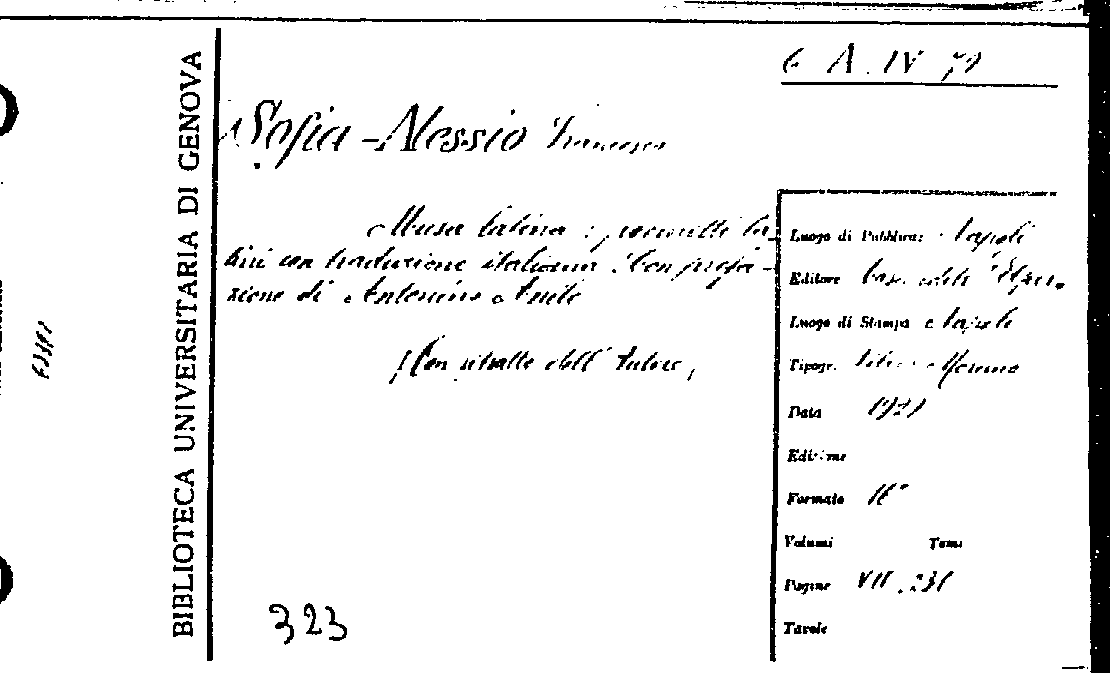 6 A. IV 79
BIBLIOTECA UNIVERSITARIA DI GENOVA
Sofia-Alessio Francesco
Musa latina : poemetti la-
tini con traduzione italiana. Con prefa-
zione di Antonino Anile
(Con ritratto dell' Autore)
Luogo di Pubblicaz. Napoli
Editore Casa edit.
Luogo di Stampa Napoli
Tipogr.
Data
Edizione
Formato 16°
Volumi Tomi
Pagine VII. 231
Tavole
323